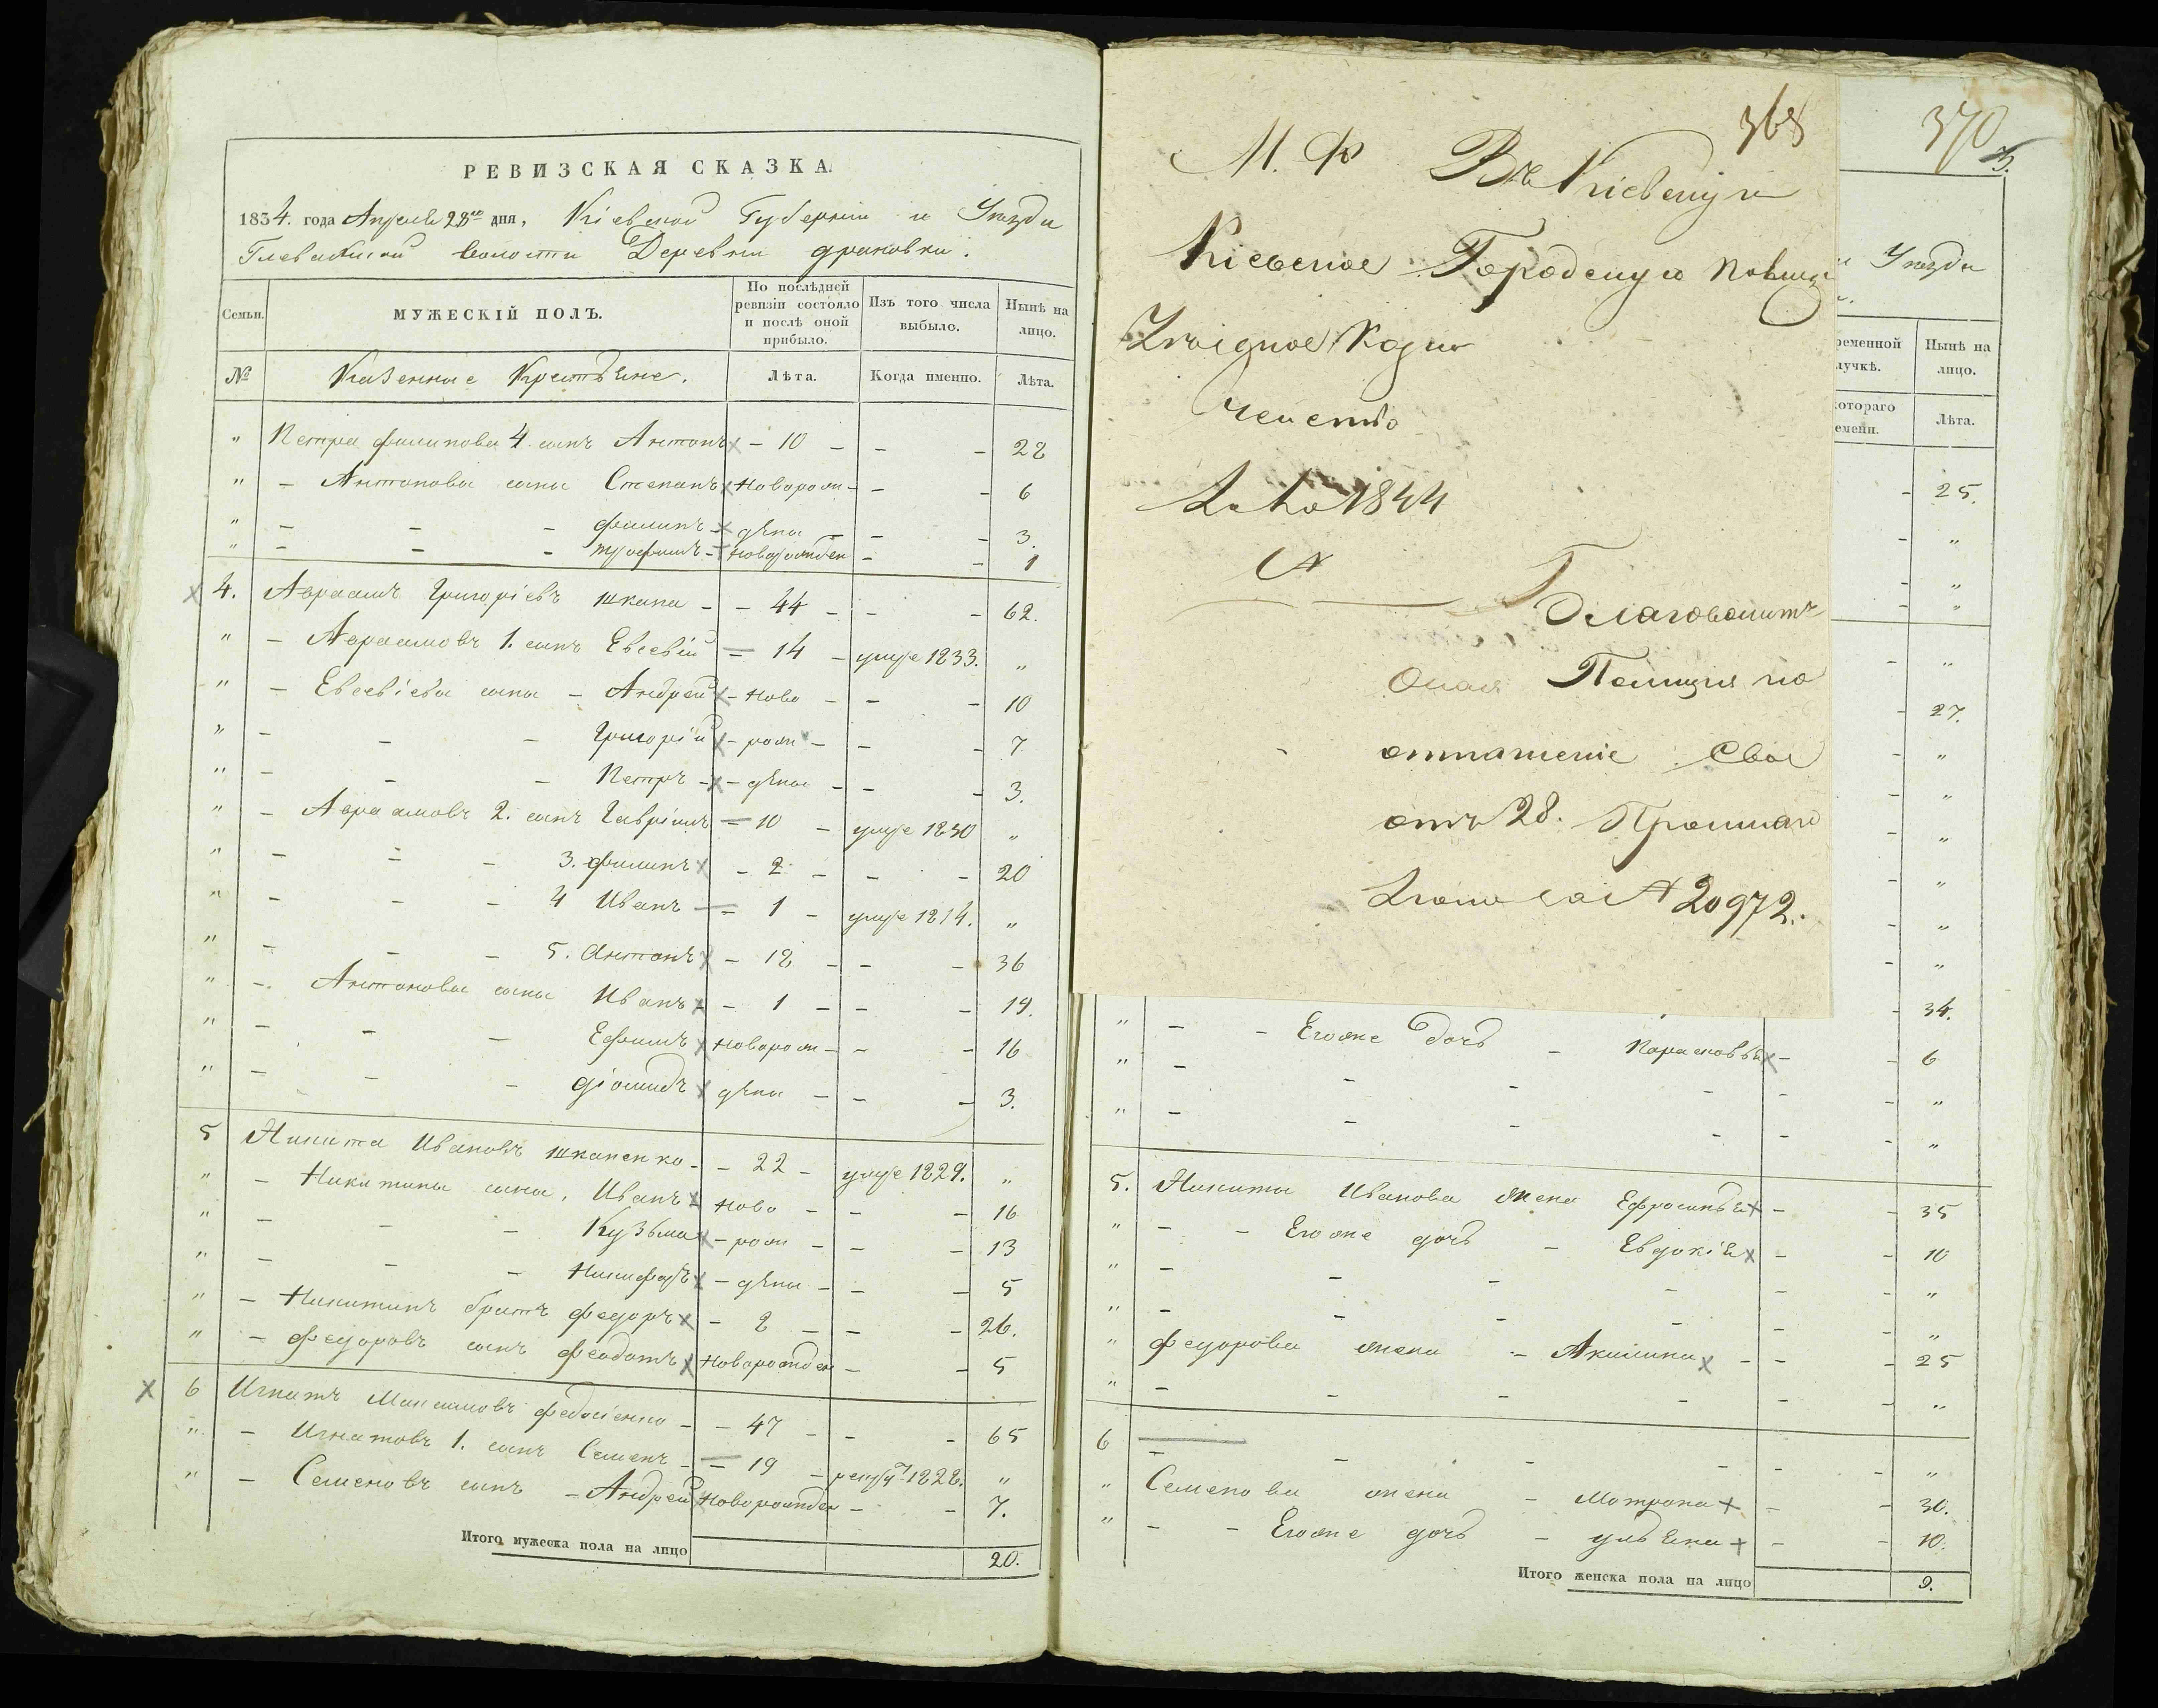 РЕВИЗСКАЯ СКАЗКА.
1834. года Апреля 28го дня, Кіевской Губерніи и Уезда
Глевахской волости Деревни
Семьи. МУЖЕСКІЙ ПОЛЪ. По последней ревизіи состояло и после оной прибыло. Изъ того числа выбыло. Ныне на лицо.
№ Казенные Крестьяне. Лѣта. Когда именно. Лѣта.
" Петра филипова 4. сынъ Антонъ x - 10 - - - 22
" - Антоновы сыны Степанъ x новорож- - - 6
" - - - филипъ - x дены - - - 3.
" - - - трофимъ - новорожден - - 1
x 4. Авраамъ Григоріевъ шкапа - - 44 - - - 62.
" - Авраамовъ 1. сынъ Евсевій - 14 - умре 1833. "
" - Евсевіевы сыны - Андрей x - ново - - - 10
" - - - Григорій x - рож - - - 7
" - - - Петръ - x - дены - - - 3.
" - Авраамовъ 2. сынъ Гавріилъ - 10 - умре 1830 "
" - - - 3. филипъ x - 2 - - - 20
" - - - 4 Иванъ - 1 - умре 1814. "
" - - - 5. Антонъ x - 18 - - - 36
" - Антоновы сыны Иванъ x - 1 - - - 19.
" - - - Ефимъ x новорож - - - 16
" - - - діомидъ x дены - - - 3.
5 Никита Ивановъ шкапенко - - 22 - умре 1829. "
" - Никитины сыны. Иванъ x ново - - - 16
" - - - Кузьма x - рож - - - 13
" - - - Никифоръ x - дены - - - 5
" - Никитинъ братъ федоръ x - 8 - - - 26.
" - федоровъ сынъ феодотъ x новорожден - - 5
x 6 Игнатъ Максимовъ - - 47 - - - 65
" - Игнатовъ 1. сынъ Семенъ - - 19 - 1828. "
" - Семеновъ сынъ - Андрей новорожден - - 7.
Итого мужеска пола на лицо 20.
368
М. Ф Въ Кіевскую
Кіевское Городскую
Казна
чейство
1844
№
Благоволитъ
Оная Полиция по
отношеніе свое
отъ 28. Прошлаго
№ 20972.
370
Уезда
ременной лучкѣ. Нынѣ на лицо.
котораго емени. Лѣта.
- 25.
- "
- "
- "
- "
- 27.
- "
- "
- "
- "
- "
- "
- 34.
" - - Егоже дочь - Парасковья x - - 6
" - - - - - - "
" - - - - - - "
5. Никиты Иванова жена Ефросинья x - - 35
" - - Егоже дочь - Евдокія x - - 10
" - - - - - - "
" - - - - - - "
" федорова жена - Акилина x - - - 25
" - - - - - - "
6 - - - - - - "
" Семенова жена - Мотрона + - - 30.
" - - Егоже дочь - ульяна + - - 10.
Итого женска пола на лицо 9.